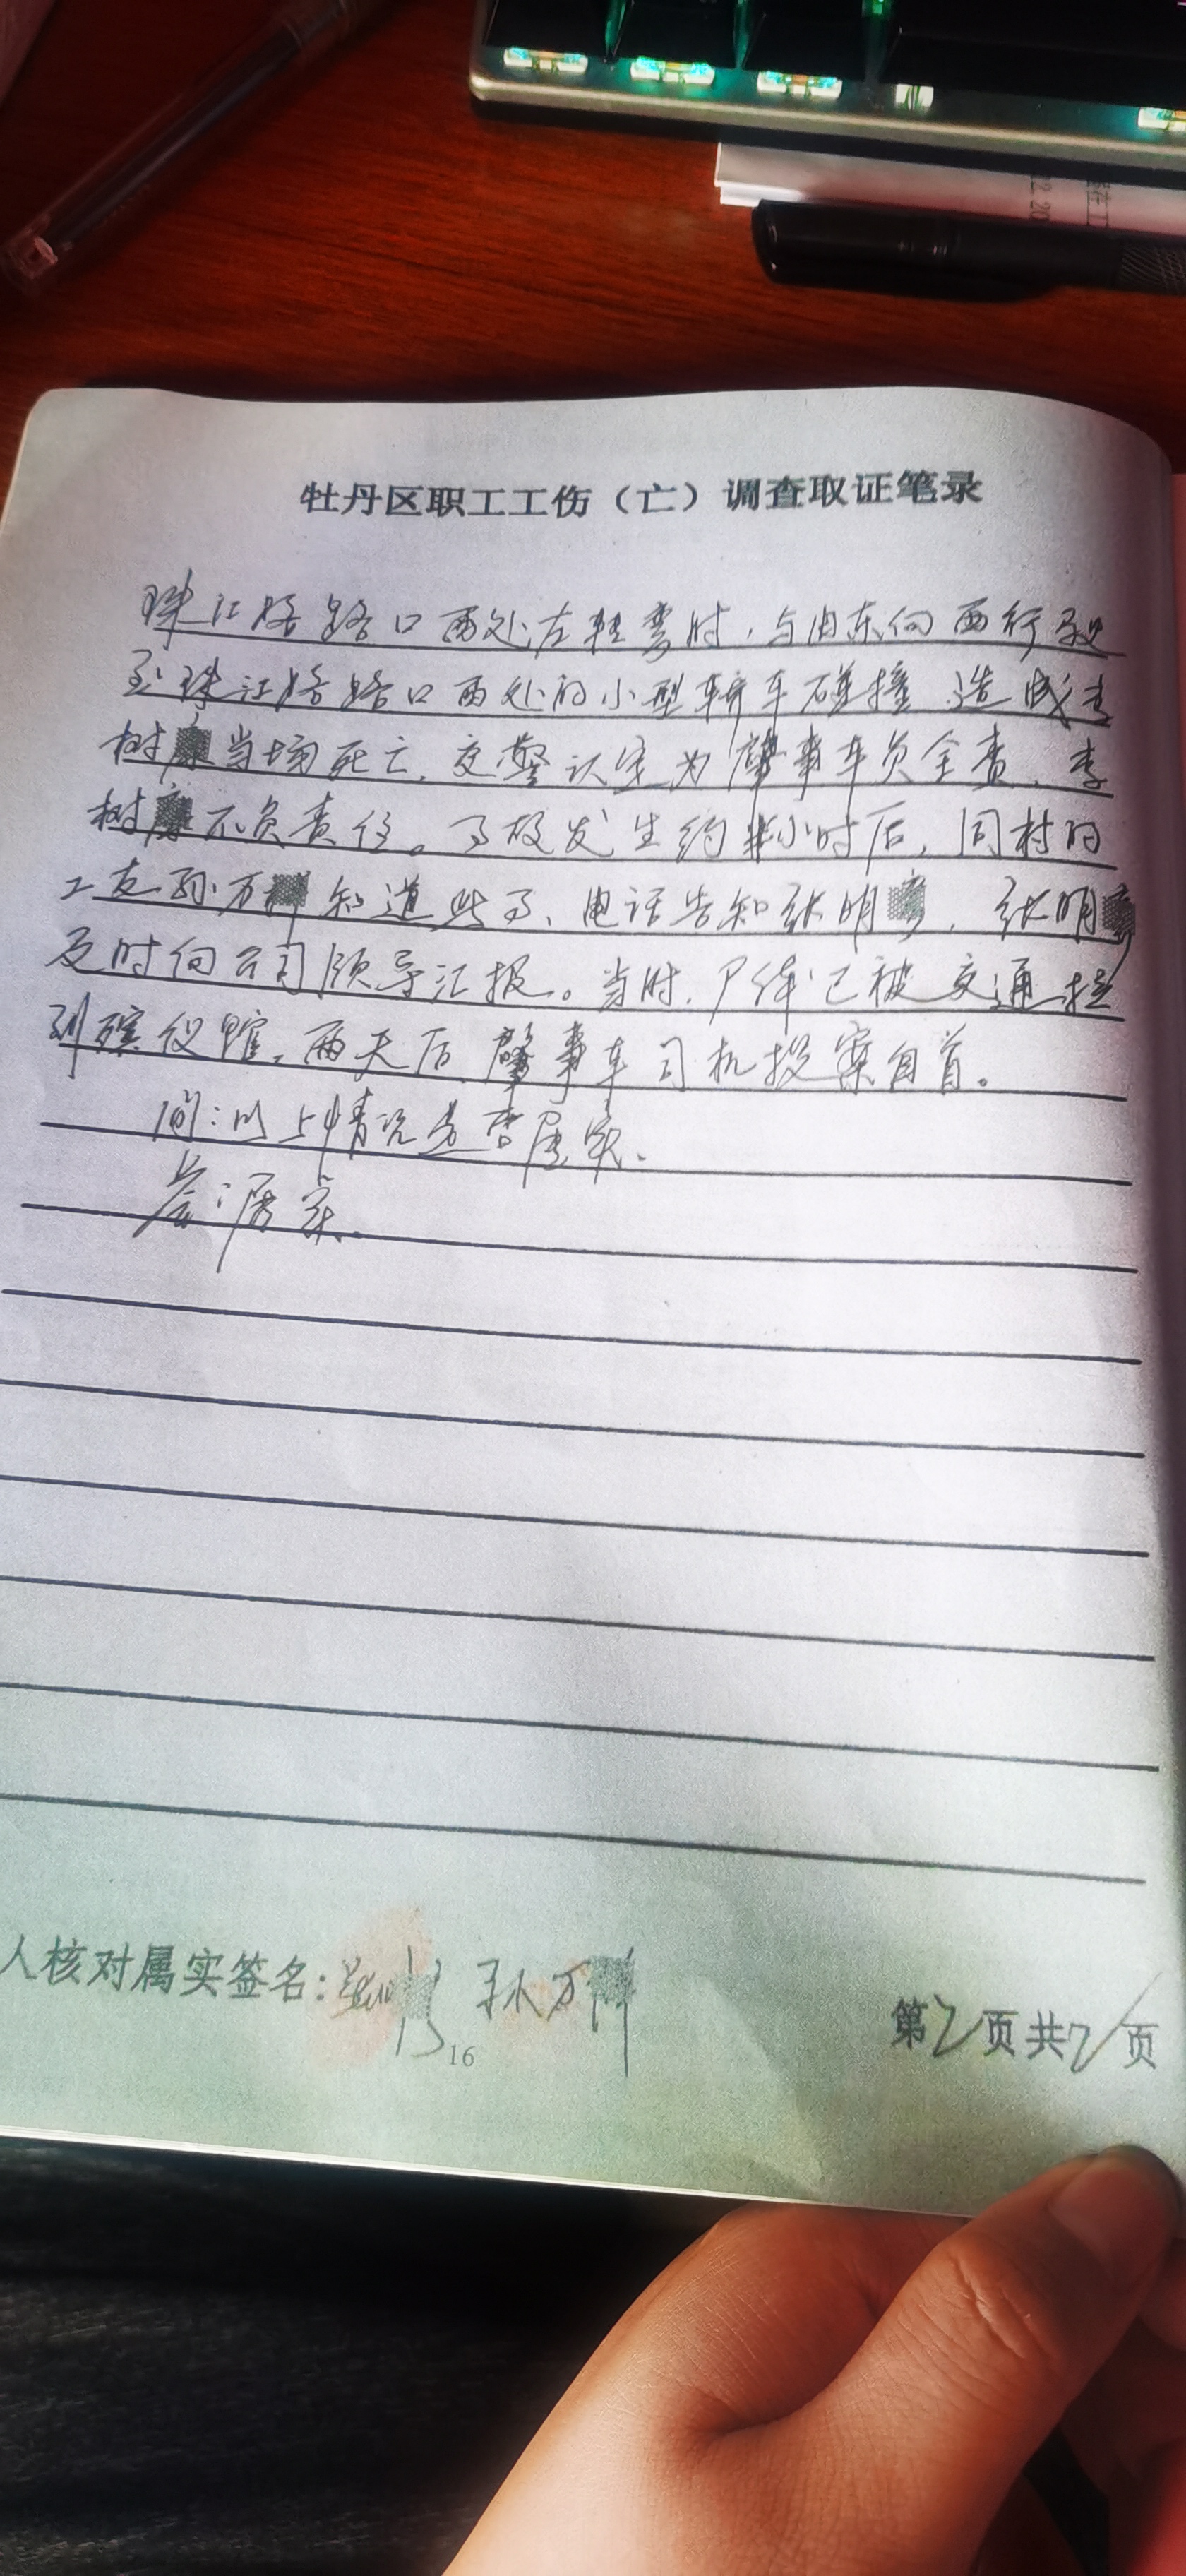 牡丹区职工工伤（亡）调查取证笔录
珠江路路口西处左转弯时，与由东向西行驶
至珠江路路口西处的小型轿车碰撞，造成李
树当场死亡，交警认定为肇事车负全责，李
树不负责任。事故发生约半小时后，同村的
工友孙万知道此事，电话告知张明，张明
及时向公司领导汇报。当时，尸体已被交通拉
到殡仪馆，两天后，肇事车司机投案自首。
问：以上情况是否属实。
答：属实。
人核对属实签名：孙万
16
第2页共2页